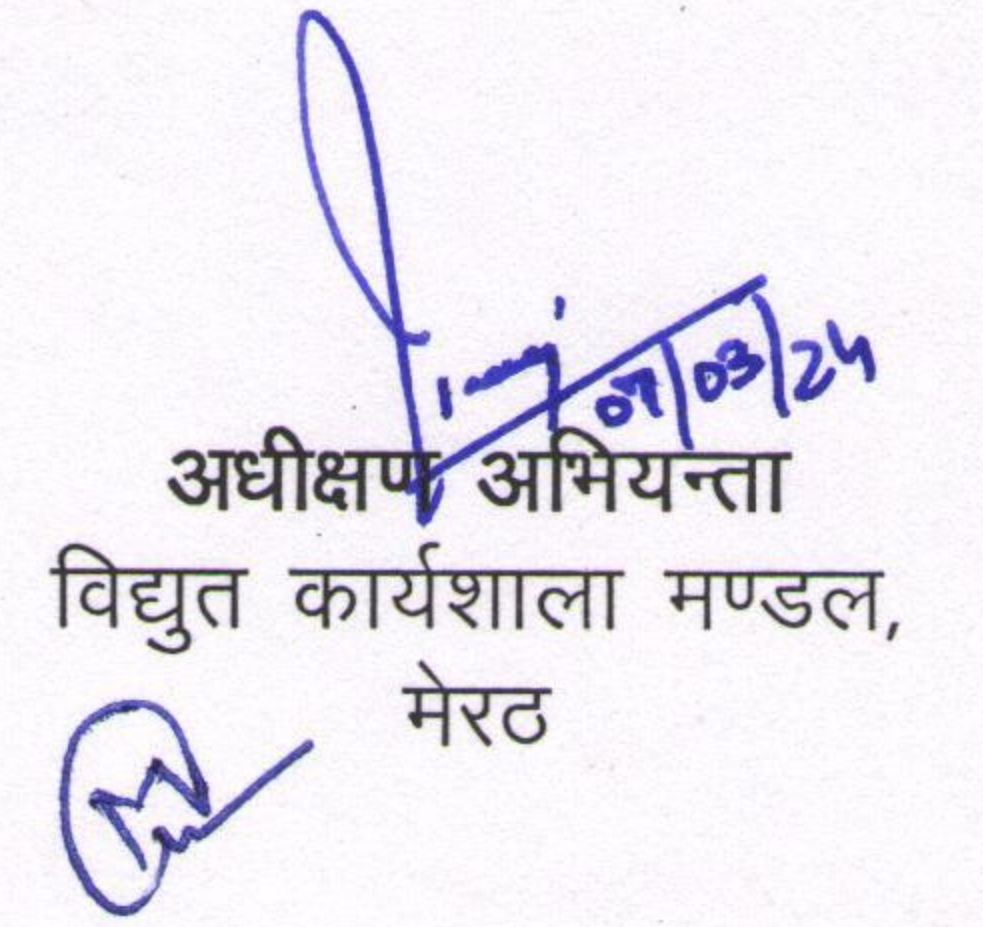 07/03/24
अधीक्षण अभियन्ता
विद्युत कार्यशाला मण्डल,
मेरठ